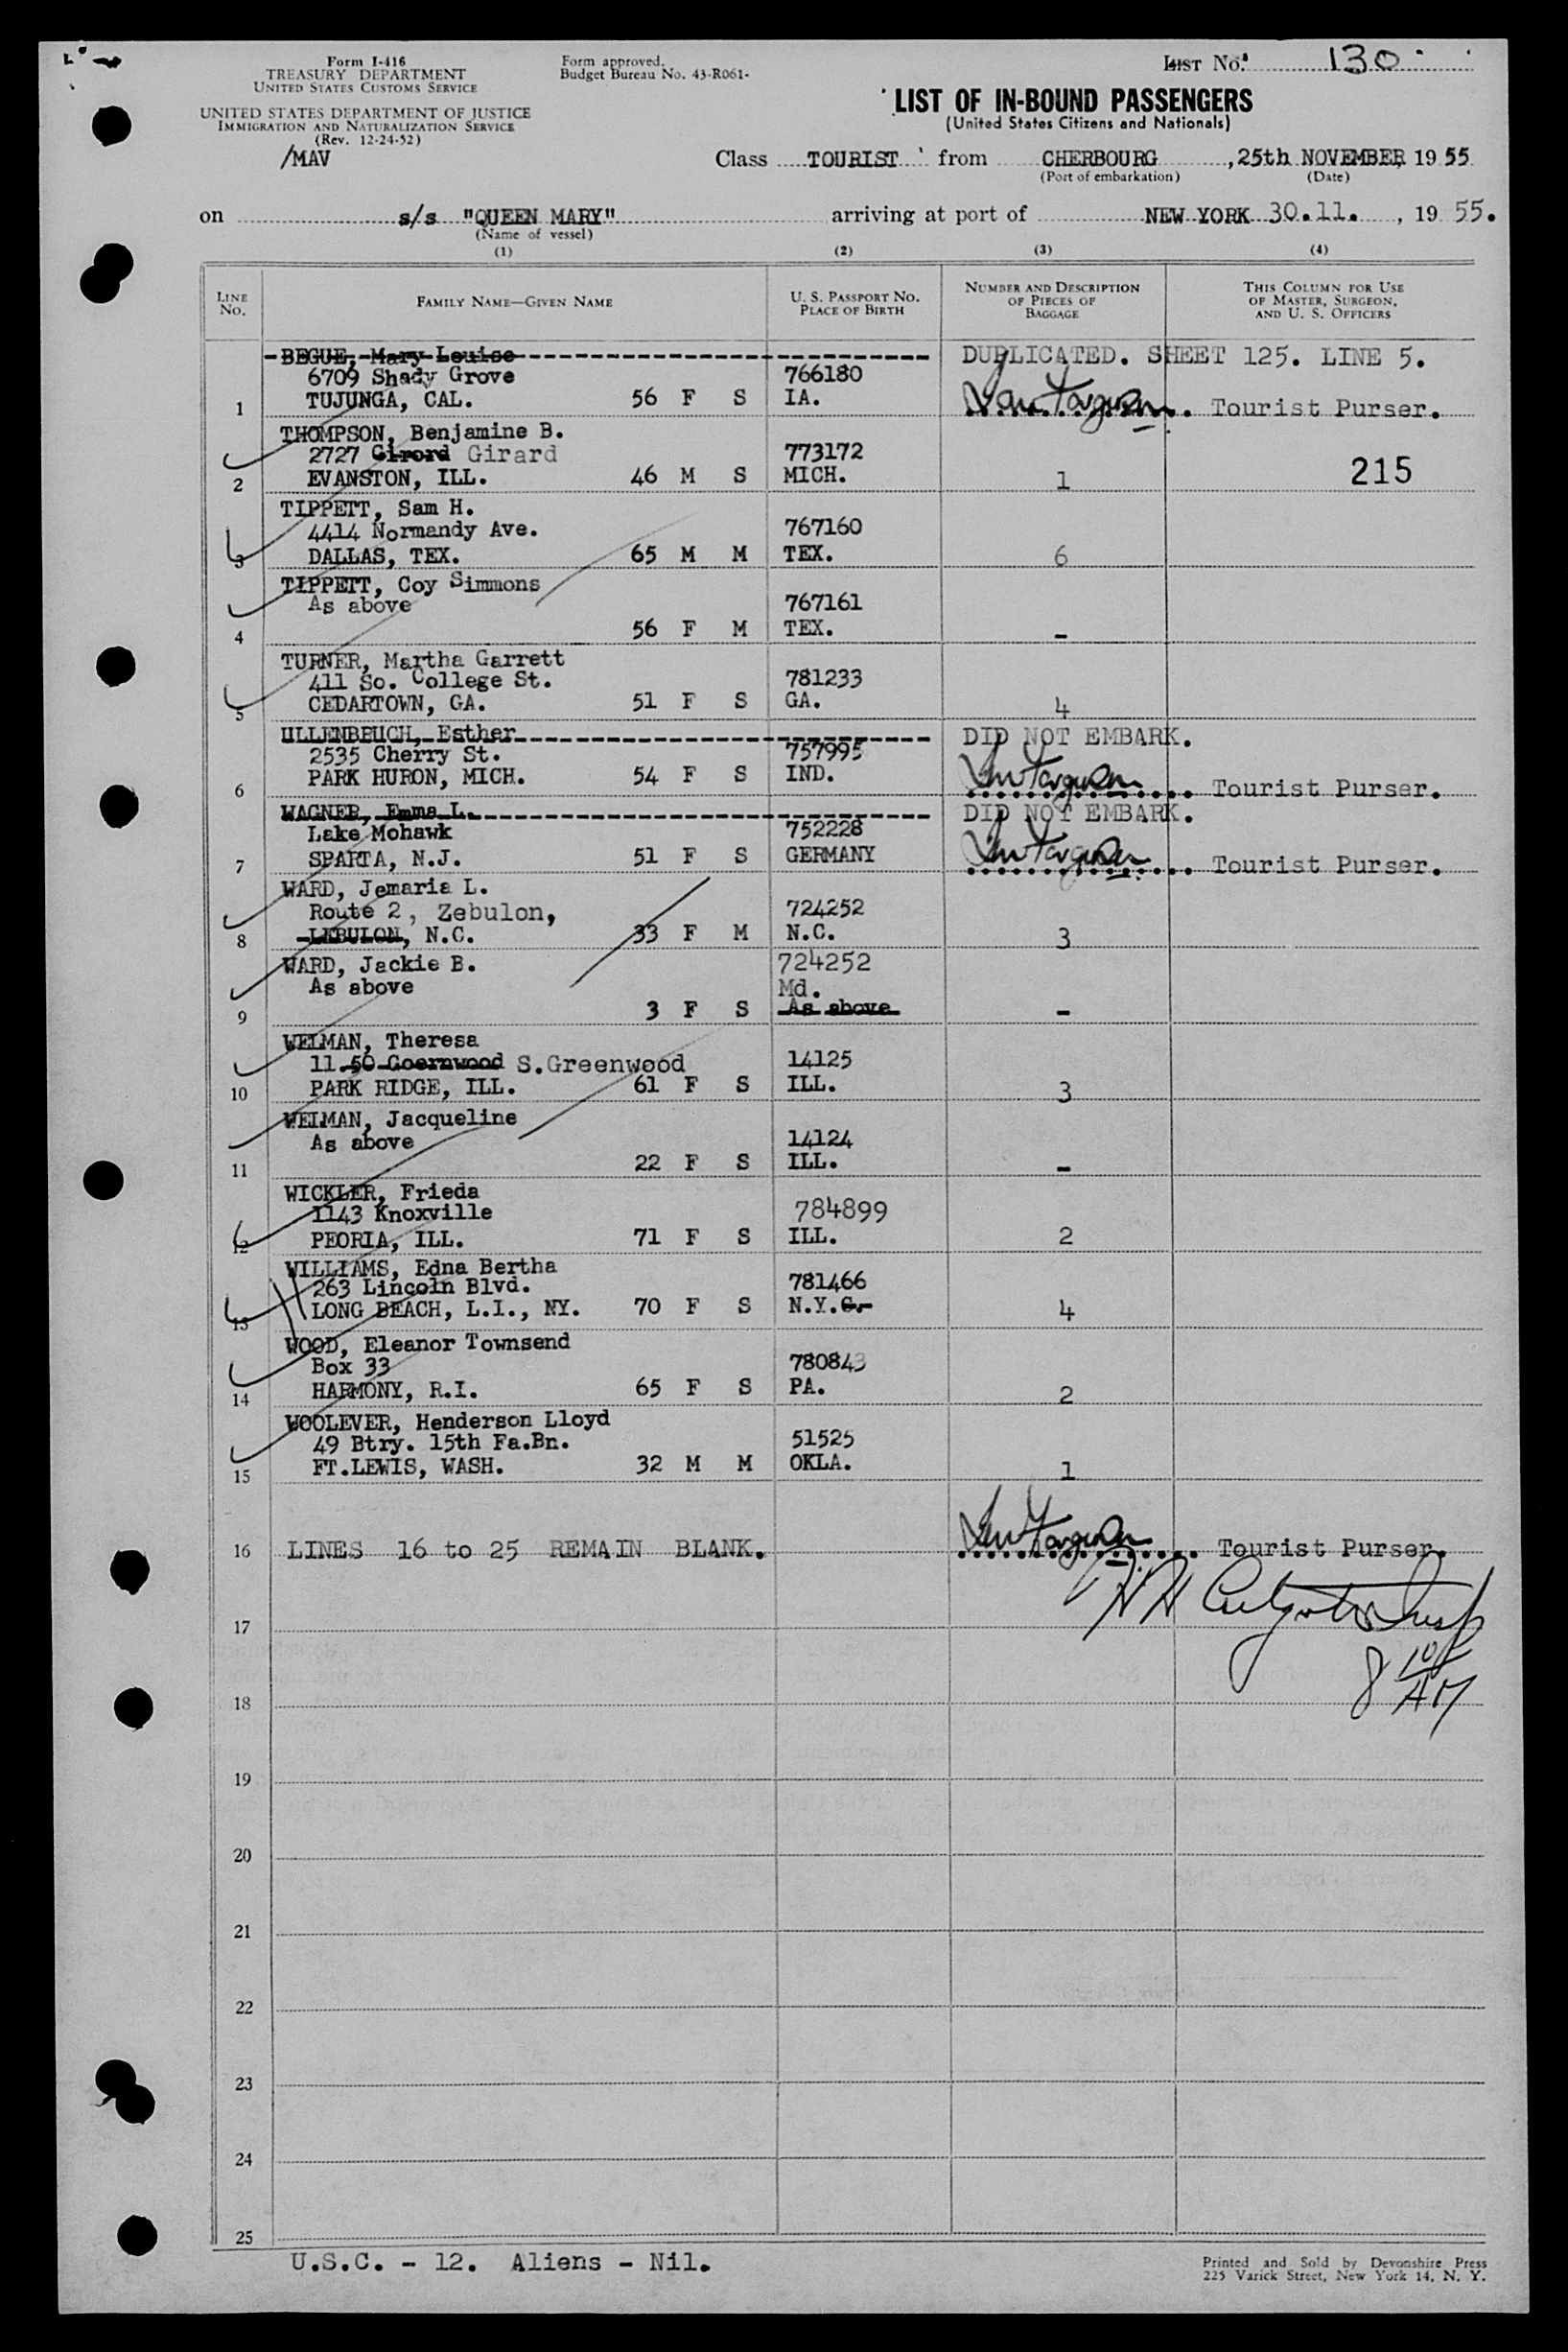 Form I-416
TREASURY DEPARTMENT
UNITED STATES CUSTOMS SERVICE
UNITED STATES DEPARTMENT OF JUSTICE
IMMIGRATION AND NATURALIZATION SERVICE
(Rev. 12-24-52)
/MAV
Form approved.
Budget Bureau No. 43-R061-
LIST No. 130
LIST OF IN-BOUND PASSENGERS
(United States Citizens and Nationals)
Class TOURIST from CHERBOURG, 25th NOVEMBER, 19 55
(Port of embarkation) (Date)
on s/s "QUEEN MARY" arriving at port of NEW YORK 30.11. , 19 55.
(Name of vessel)
(1) (2) (3) (4)
LINE No. FAMILY NAME—GIVEN NAME U. S. PASSPORT NO. PLACE OF BIRTH NUMBER AND DESCRIPTION OF PIECES OF BAGGAGE THIS COLUMN FOR USE OF MASTER, SURGEON, AND U. S. OFFICERS
BEGUE, Mary Louise DUPLICATED. SHEET 125. LINE 5.
6709 Shady Grove 766180
1 TUJUNGA, CAL. 56 F S IA. Tourist Purser.
THOMPSON, Benjamine B.
2727 Girord Girard 773172
2 EVANSTON, ILL. 46 M S MICH. 1 215
TIPPETT, Sam H.
4414 Normandy Ave. 767160
3 DALLAS, TEX. 65 M M TEX. 6
TIPPETT, Coy Simmons
As above 767161
4 56 F M TEX. -
TURNER, Martha Garrett
411 So. College St. 781233
5 CEDARTOWN, GA. 51 F S GA. 4
ULLENBEUCH, Esther DID NOT EMBARK.
2535 Cherry St. 757995
6 PARK HURON, MICH. 54 F S IND. Tourist Purser.
WAGNER, Emma L. DID NOT EMBARK.
Lake Mohawk 752228
7 SPARTA, N.J. 51 F S GERMANY Tourist Purser.
WARD, Jemaria L.
Route 2, Zebulon, 724252
8 LEBULON, N.C. 33 F M N.C. 3
WARD, Jackie B. 724252
As above Md.
9 3 F S As above -
WELMAN, Theresa
11.50 Goernwood S.Greenwood 14125
10 PARK RIDGE, ILL. 61 F S ILL. 3
WELMAN, Jacqueline
As above 14124
11 22 F S ILL. -
WICKLER, Frieda
1143 Knoxville 784899
12 PEORIA, ILL. 71 F S ILL. 2
WILLIAMS, Edna Bertha
263 Lincoln Blvd. 781466
13 LONG BEACH, L.I., NY. 70 F S N.Y.C. 4
WOOD, Eleanor Townsend
Box 33 780843
14 HARMONY, R.I. 65 F S PA. 2
WOOLEVER, Henderson Lloyd
49 Btry. 15th Fa.Bn. 51525
15 FT.LEWIS, WASH. 32 M M OKLA. 1
16 LINES 16 to 25 REMAIN BLANK. Tourist Purser.
17
8 10 AM
18
19
20
21
22
23
24
25
U.S.C. - 12. Aliens - Nil.
Printed and Sold by Devonshire Press
225 Varick Street, New York 14, N. Y.